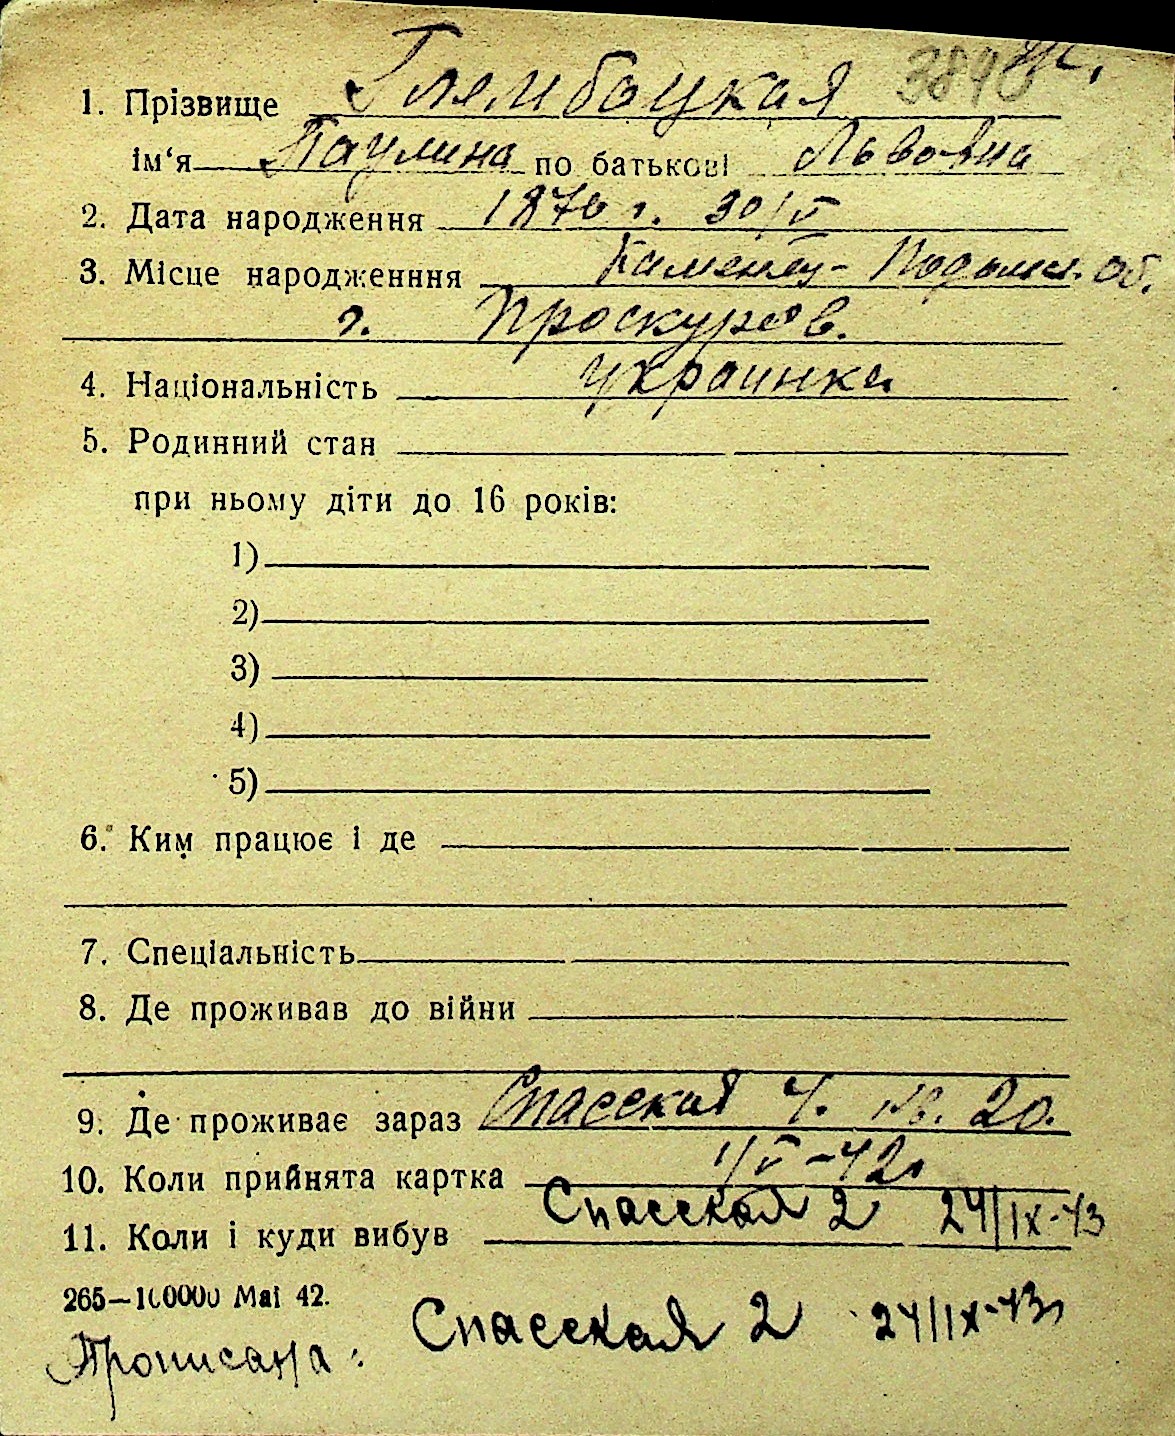 1. Прізвище Глембоцкая
ім‘я Паулина по батькові Львовна
2. Дата народження 1876 г. 30/V
3. Місце народженння Каменец-Подольск. об.
г. Проскуров.
4. Національність украинка
5. Родинний стан
при ньому діти до 16 років:
1)
2)
3)
4)
5)
6. Ким працює і де
7. Спеціальність
8. Де проживав до війни
9. Де проживає зараз Спасская 4. кв. 20.
10. Коли прийнята картка 1/V-42
11. Коли і куди вибув Спасская 2 24/IX-43
265—100000 Маі 42.
Прописана: Спасская 2 24/IX-43